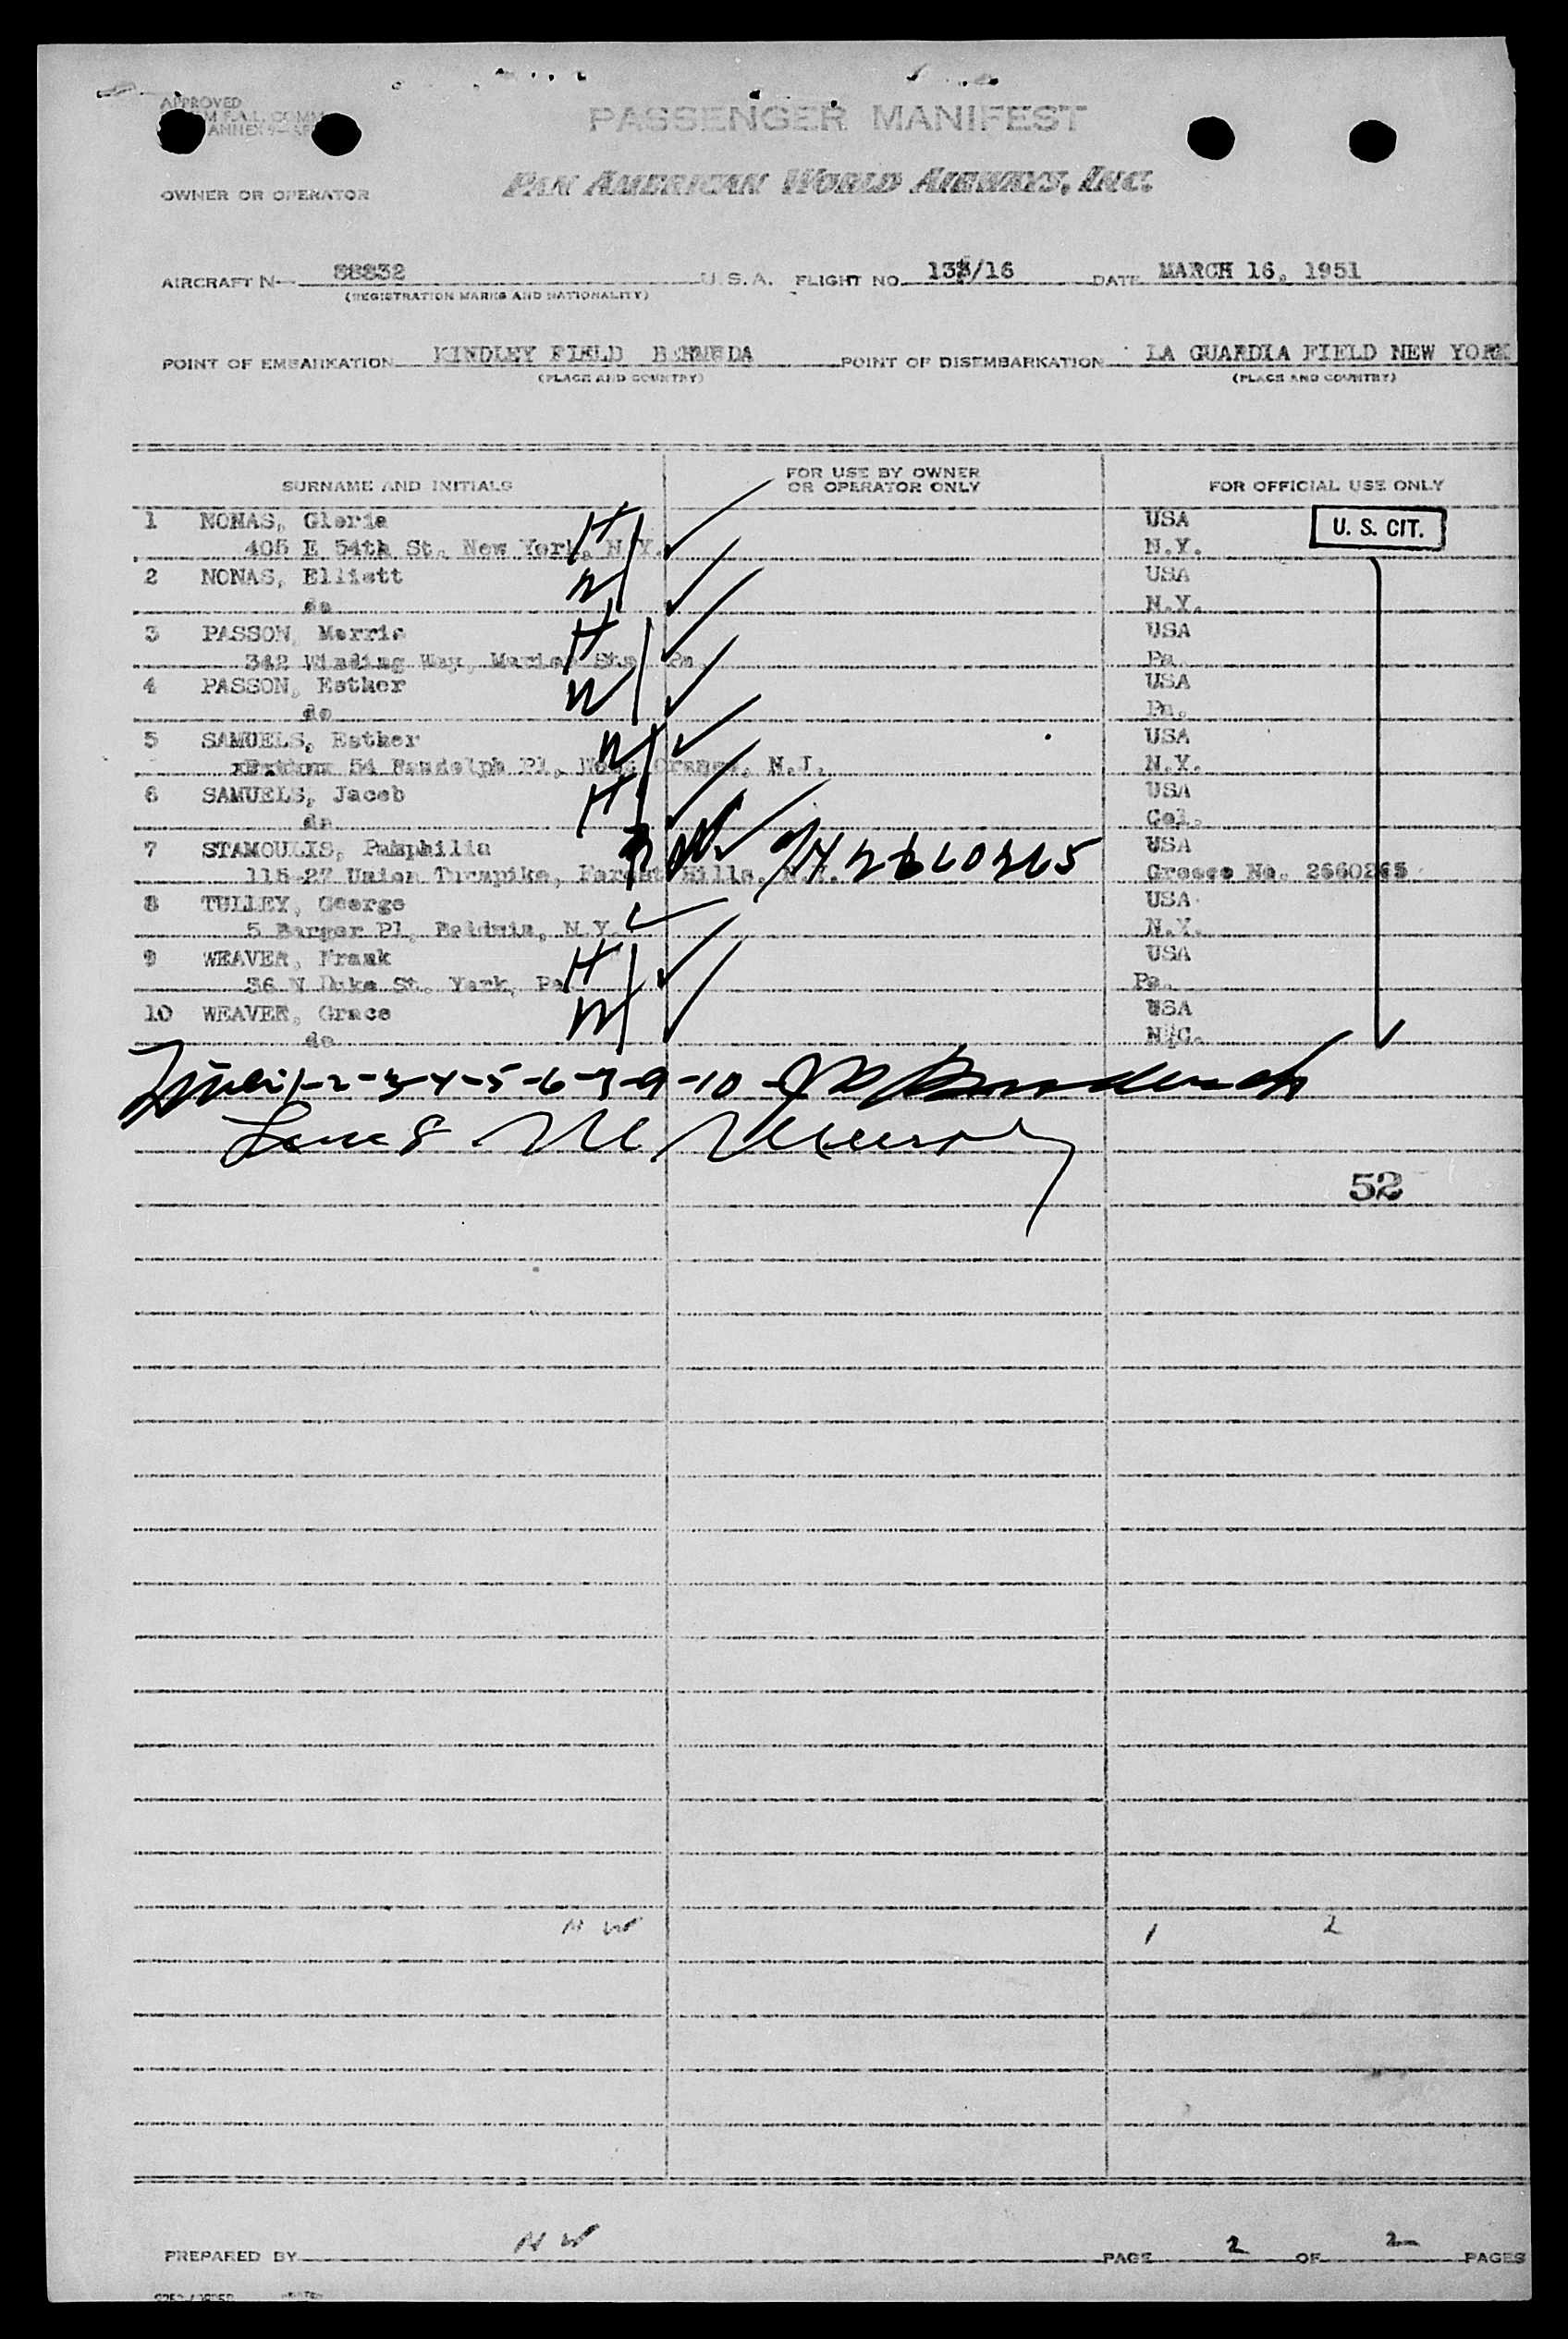 APPROVED
PASSENGER MANIFEST
OWNER OR OPERATOR PAN AMERICAN WORLD AIRWAYS, INC.
AIRCRAFT N 88832 U.S.A. FLIGHT NO. /16 DATE MARCH 16, 1951
(REGISTRATION MARKS AND NATIONALITY)
POINT OF EMBARKATION KINDLEY FIELD BERMUDA POINT OF DISEMBARKATION LA GUARDIA FIELD NEW YORK
(PLACE AND COUNTRY) (PLACE AND COUNTRY)
SURNAME AND INITIALS FOR USE BY OWNER OR OPERATOR ONLY FOR OFFICIAL USE ONLY
1 NONAS, Gloria H USA U. S. CIT.
405 E 54th St. New York, N.Y. N.Y.
2 NONAS, Elliott W USA
do N.Y.
3 PASSON, Morris H USA
342 Winding Way, Pa. Pa.
4 PASSON, Esther W USA
do Pa.
5 SAMUELS, Esther W USA
54 Randolph Pl, Orange, N.J. N.Y.
6 SAMUELS, Jacob H USA
do Col.
7 STAMOULIS, Pamphilia 2660265 USA
115-27 Union Turnpike, Forest Hills, N.Y. Greece No. 2660265
8 TULLEY, George USA
5 Barger Pl, Baldwin, N.Y. N.Y.
9 WEAVER, Frank H USA
36 N Duke St. York, Pa Pa.
10 WEAVER, Grace W USA
do N.C.
1-2-3-4-5-6-7-9-10
52
N W 1 2
PREPARED BY N W PAGE 2 OF 2 PAGES